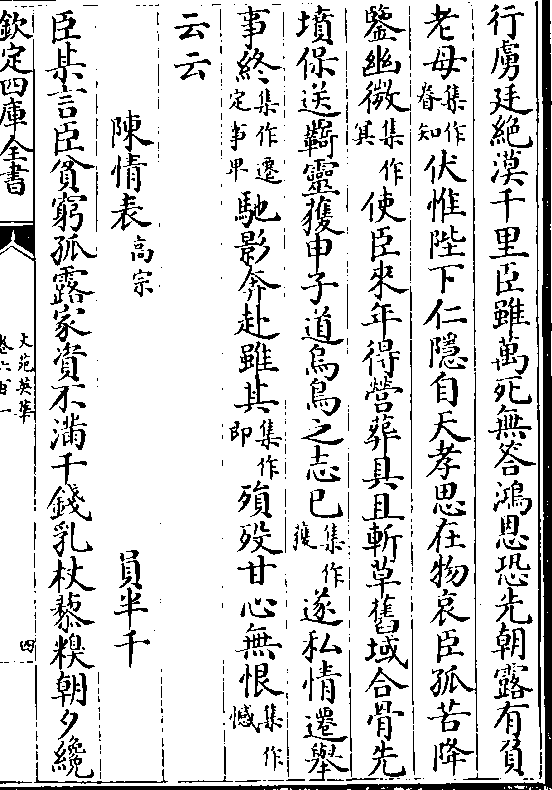 行虜廷絶漠千里臣雖萬死無答鴻恩恐先朝露有負
老母集作眷知伏惟陛下仁隠自天孝思在物哀臣孤苦降
鑒幽微集作其使臣來年得營葬具且斬草舊域合骨先
墳保送羇靈獲申子道烏鳥之志已集作獲遂私情遷舉
事終集作遷定事畢馳影奔赴雖其集作即殞殁甘心無恨集作憾
云云
陳情表高宗 員半千
臣某言臣貧窮孤露家資不滿千錢乳杖藜糗朝夕纔
欽定四庫全書
文苑英華
卷六百一
四